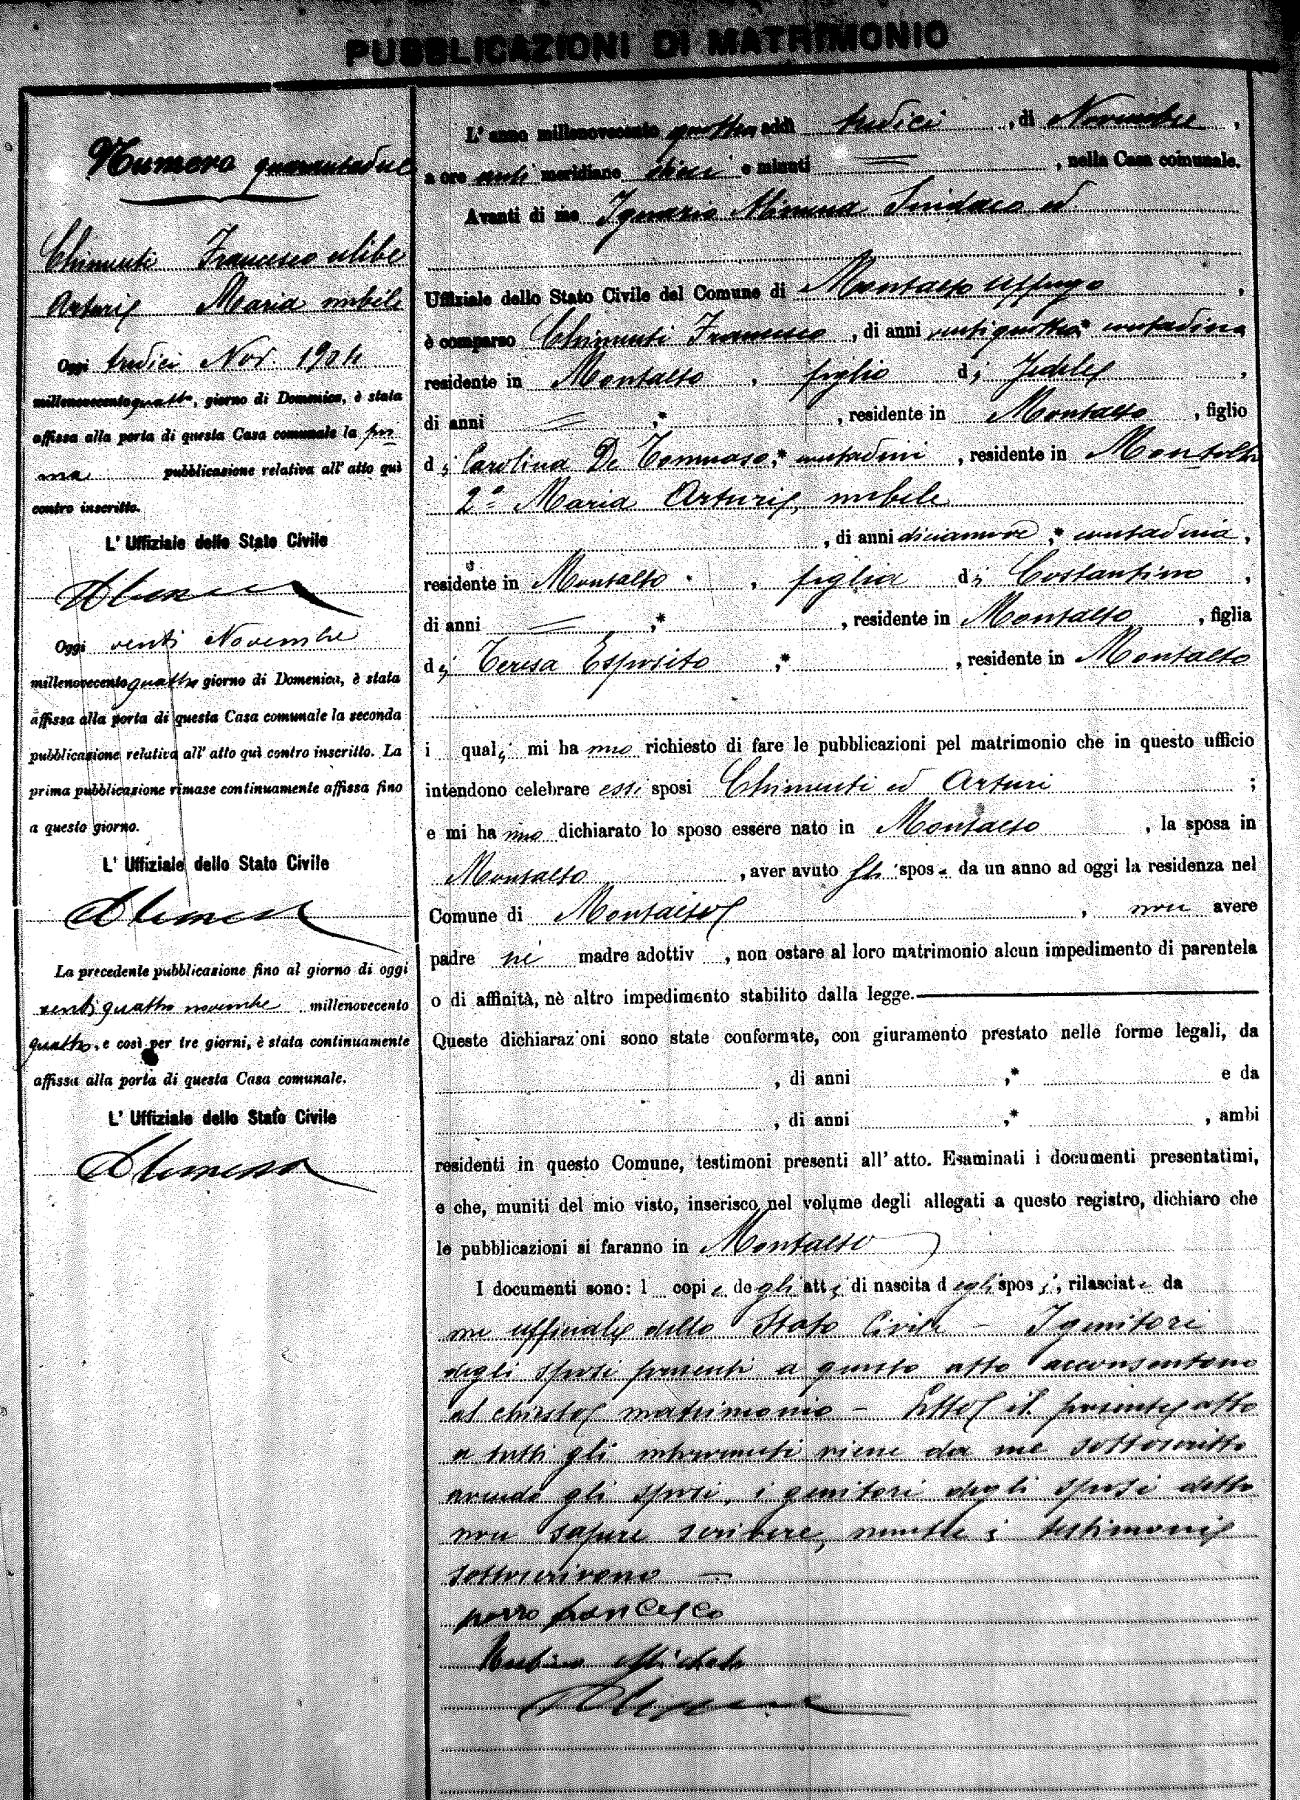 PUBBLICAZIONI DI MATRIMONIO
Numero quarantadue
Chimenti Francesco celibe
Arturi Maria nubile
Oggi tredici Nov. 1904
millenovecento quattro, giorno di Domenica, è stata
affissa alla porta di questa Casa comunale la pri
ma pubblicazione relativa all' atto quì
contro inscritto.
L' Uffiziale dello Stato Civile
Oggi venti Novembre
millenovecento quattro giorno di Domenica, è stata
affissa alla porta di questa Casa comunale la seconda
pubblicazione relativa all' atto quì contro inscritto. La
prima pubblicazione rimase continuamente affissa fino
a questo giorno.
L' Uffiziale dello Stato Civile
La precedente pubblicazione fino al giorno di oggi
venti quattro novembre millenovecento
quattro, e così per tre giorni, è stata continuamente
affissa alla porta di questa Casa comunale.
L' Uffiziale dello Stato Civile
L' anno millenovecento quattro addì tredici, di Novembre,
a ore anti meridiane dieci e minuti =, nella Casa comunale.
Avanti di me Ignazio Sindaco ed
Uffiziale dello Stato Civile del Comune di Montalto Uffugo,
è comparso Chimenti Francesco, di anni ventiquattro,* contadino,
residente in Montalto, figlio di Fedele,
di anni =,* , residente in Montalto, figlio
di Carolina De Tommaso,* contadini, residente in Montalto
2° Maria Arturi, nubile
, di anni diciannove,* contadina,
residente in Montalto, figlia di Costantino,
di anni =,* , residente in Montalto, figlia
di Teresa Esposito,* , residente in Montalto
i quali mi hanno richiesto di fare le pubblicazioni pel matrimonio che in questo ufficio
intendono celebrare essi sposi Chimenti ed Arturi ;
e mi hanno dichiarato lo sposo essere nato in Montalto, la sposa in
Montalto, aver avuto gli sposi da un anno ad oggi la residenza nel
Comune di Montalto, non avere
padre nè madre adottiv , non ostare al loro matrimonio alcun impedimento di parentela
o di affinità, nè altro impedimento stabilito dalla legge.
Queste dichiarazioni sono state conformate, con giuramento prestato nelle forme legali, da
, di anni ,* e da
, di anni ,* , ambi
residenti in questo Comune, testimoni presenti all' atto. Esaminati i documenti presentatimi,
e che, muniti del mio visto, inserisco nel volume degli allegati a questo registro, dichiaro che
le pubblicazioni si faranno in Montalto
I documenti sono: 1 copie degli atti di nascita degli sposi, rilasciate da
me uffiziale dello Stato Civile – I genitori
degli sposi presenti a questo atto acconsentono
al chiesto matrimonio – Letto il presente atto
a tutti gli intervenuti viene da me sottoscritto
avendo gli sposi, i genitori degli sposi detto
non sapere scrivere, mentre i testimoni
sottoscrivono –
porro francesco
Michele